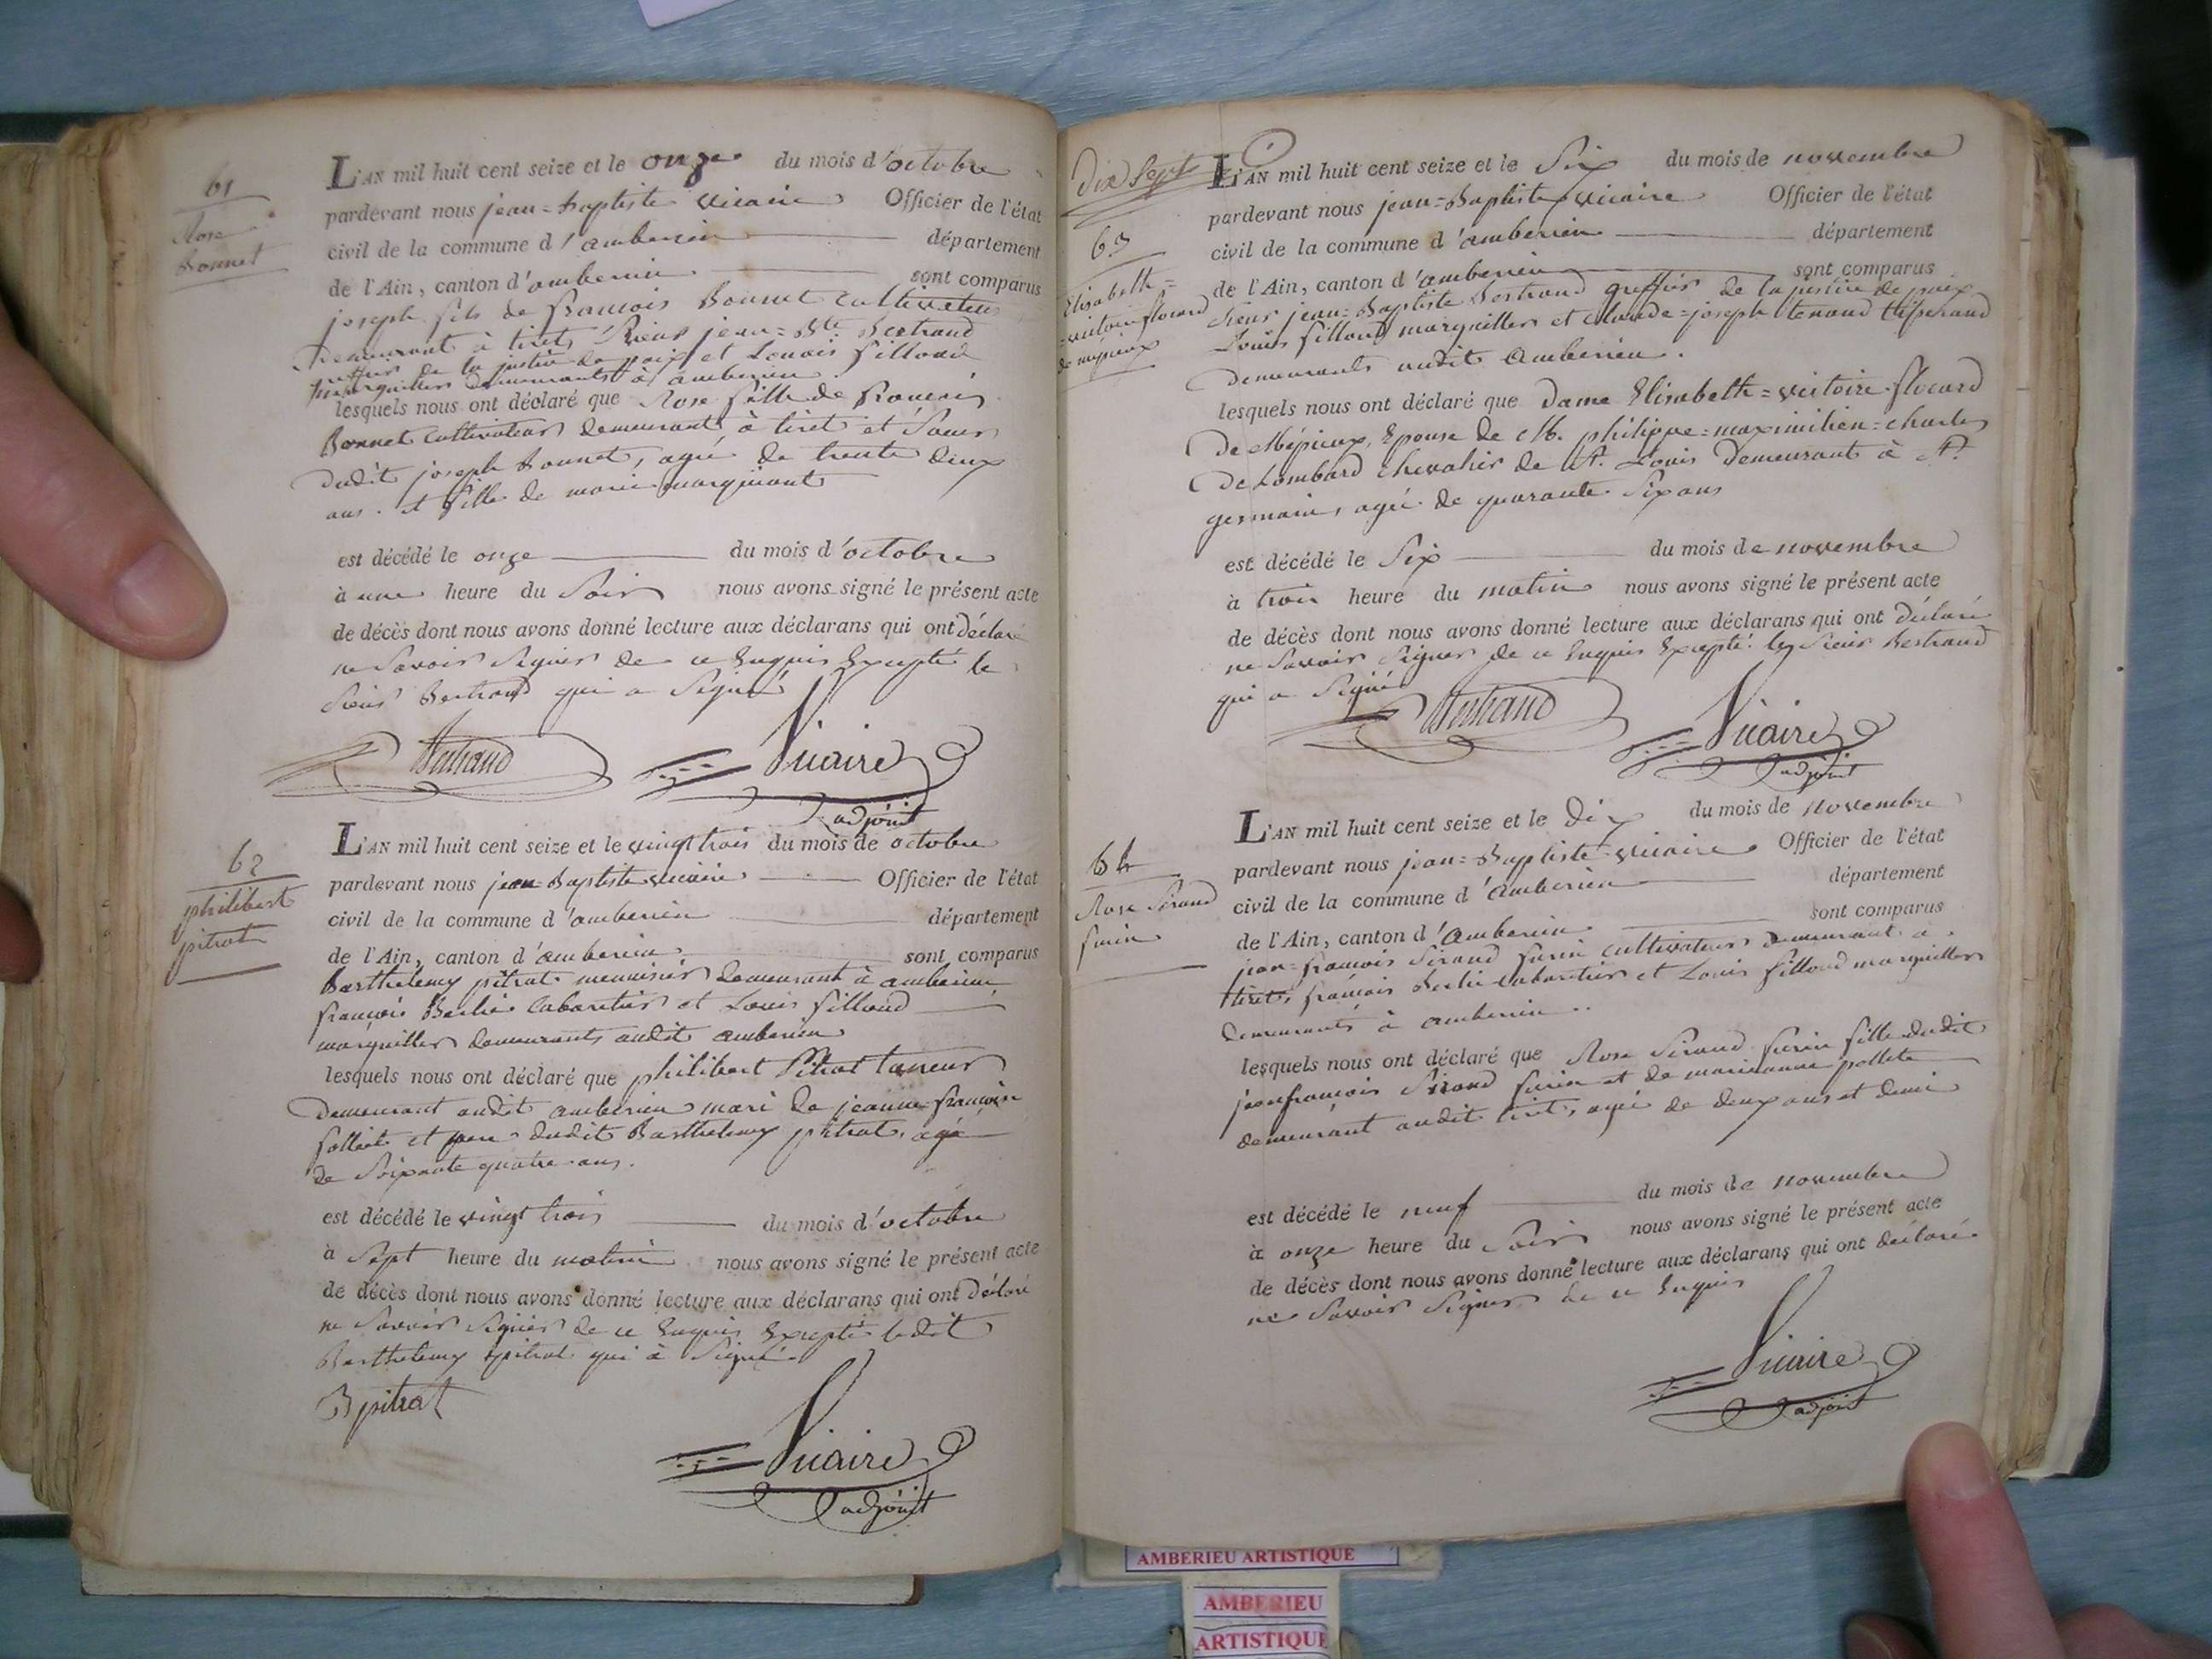 61
Rose
Bonnet
L'AN mil huit cent seize et le onze du mois d'octobre
pardevant nous jean=Baptiste vicaire Officier de l'état
civil de la commune d'amberieu département
de l'Ain, canton d'amberieu sont comparus
joseph fils de francois Bonnet Cultivateur
demeurant à tiret, Sieur jean=Bte Bertrand
greffier de la justice de paix et Louis fillond
marguiller demeurants à amberieu
lesquels nous ont déclaré que Rose fille de francois
Bonnet Cultivateur demeurant à tiret et Soeur
dudit joseph Bonnet, agée de trente deux
ans. et fille de marie
est décédé le onze du mois d'octobre
à une heure du Soir nous avons signé le présent acte
de décès dont nous avons donné lecture aux déclarans qui ont déclaré
ne Savoir Signer de ce Enquis Excepté le
Sieur Bertrand qui a Signé
Bertrand Vicaire
adjoint
62
philibert
pitrat
L'AN mil huit cent seize et le vingt trois du mois de octobre
pardevant nous jean=Baptiste vicaire Officier de l'état
civil de la commune d'amberieu département
de l'Ain, canton d'amberieu sont comparus
Barthelemy pitrat menuisier demeurant à amberieu
francois Berlie Cabaretier et Louis fillond
marguiller demeurants audit amberieu
lesquels nous ont déclaré que philibert Pitrat taneur
demeurant audit amberieu mari de jeanne=francoise
et pere dudit Barthelemy pitrat, agé
de Soixante quatre ans.
est décédé le vingt trois du mois d'octobre
à Sept heure du matin nous avons signé le présent acte
de décès dont nous avons donné lecture aux déclarans qui ont déclaré
ne Savoir Signer de ce Enquis Excepté ledit
Barthelemy pitrat qui à Signé
B pitrat
Vicaire
adjoint
Dix Sept
63
Elisabeth=
victoire flocard
de mépieux
L'AN mil huit cent seize et le Six du mois de novembre
pardevant nous jean=Baptiste vicaire Officier de l'état
civil de la commune d'amberieu département
de l'Ain, canton d'amberieu sont comparus
Sieur jean=Baptiste Bertrand greffier de la justice de paix
Louis fillond marguiller et Claude=joseph tenand tisserand
demeurants audit Amberieu.
lesquels nous ont déclaré que Dame Elisabeth=victoire flocard
de Mépieux, Epouse de M. philippe=maximilien=charles
de Lombard chevalier de St. Louis demeurant à St.
germain, agée de quarante Six ans
est décédé le Six du mois de novembre
à trois heure du matin nous avons signé le présent acte
de décès dont nous avons donné lecture aux déclarans qui ont déclaré
ne Savoir Signer de ce Enquis Excepté le Sieur Bertrand
qui a Signé
Bertrand Vicaire
adjoint
64
Rose Sirand
furin
L'AN mil huit cent seize et le dix du mois de novembre
pardevant nous jean=Baptiste vicaire Officier de l'état
civil de la commune d'amberieu département
de l'Ain, canton d'Amberieu sont comparus
jean=francois Sirand furin cultivateur demeurant a
tiret, francois Berlie Cabaretier et Louis fillond marguiller
demeurants à amberieu..
lesquels nous ont déclaré que Rose Sirand furin fille dudit
jean francois Sirand furin et de marianne pollete
demeurant audit tiret, agée de deux ans et demi
est décédé le neuf du mois de novembre
à onze heure du Soir nous avons signé le présent acte
de décès dont nous avons donné lecture aux déclarans qui ont déclaré
ne Savoir Signer de ce Enquis
Vicaire
adjoint
AMBERIEU ARTISTIQUE
AMBERIEU
ARTISTIQUE